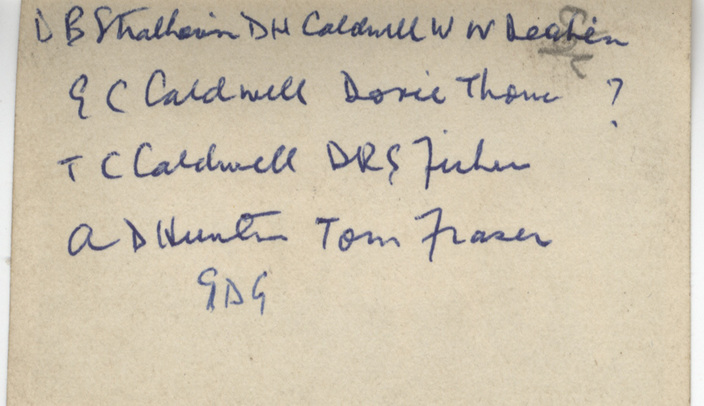 D B Strathairn D H Caldwell W W Deakin
G C Caldwell Dorie Thom ?
T C Caldwell D R G Fisher
A D Hunter Tom Fraser
G D G